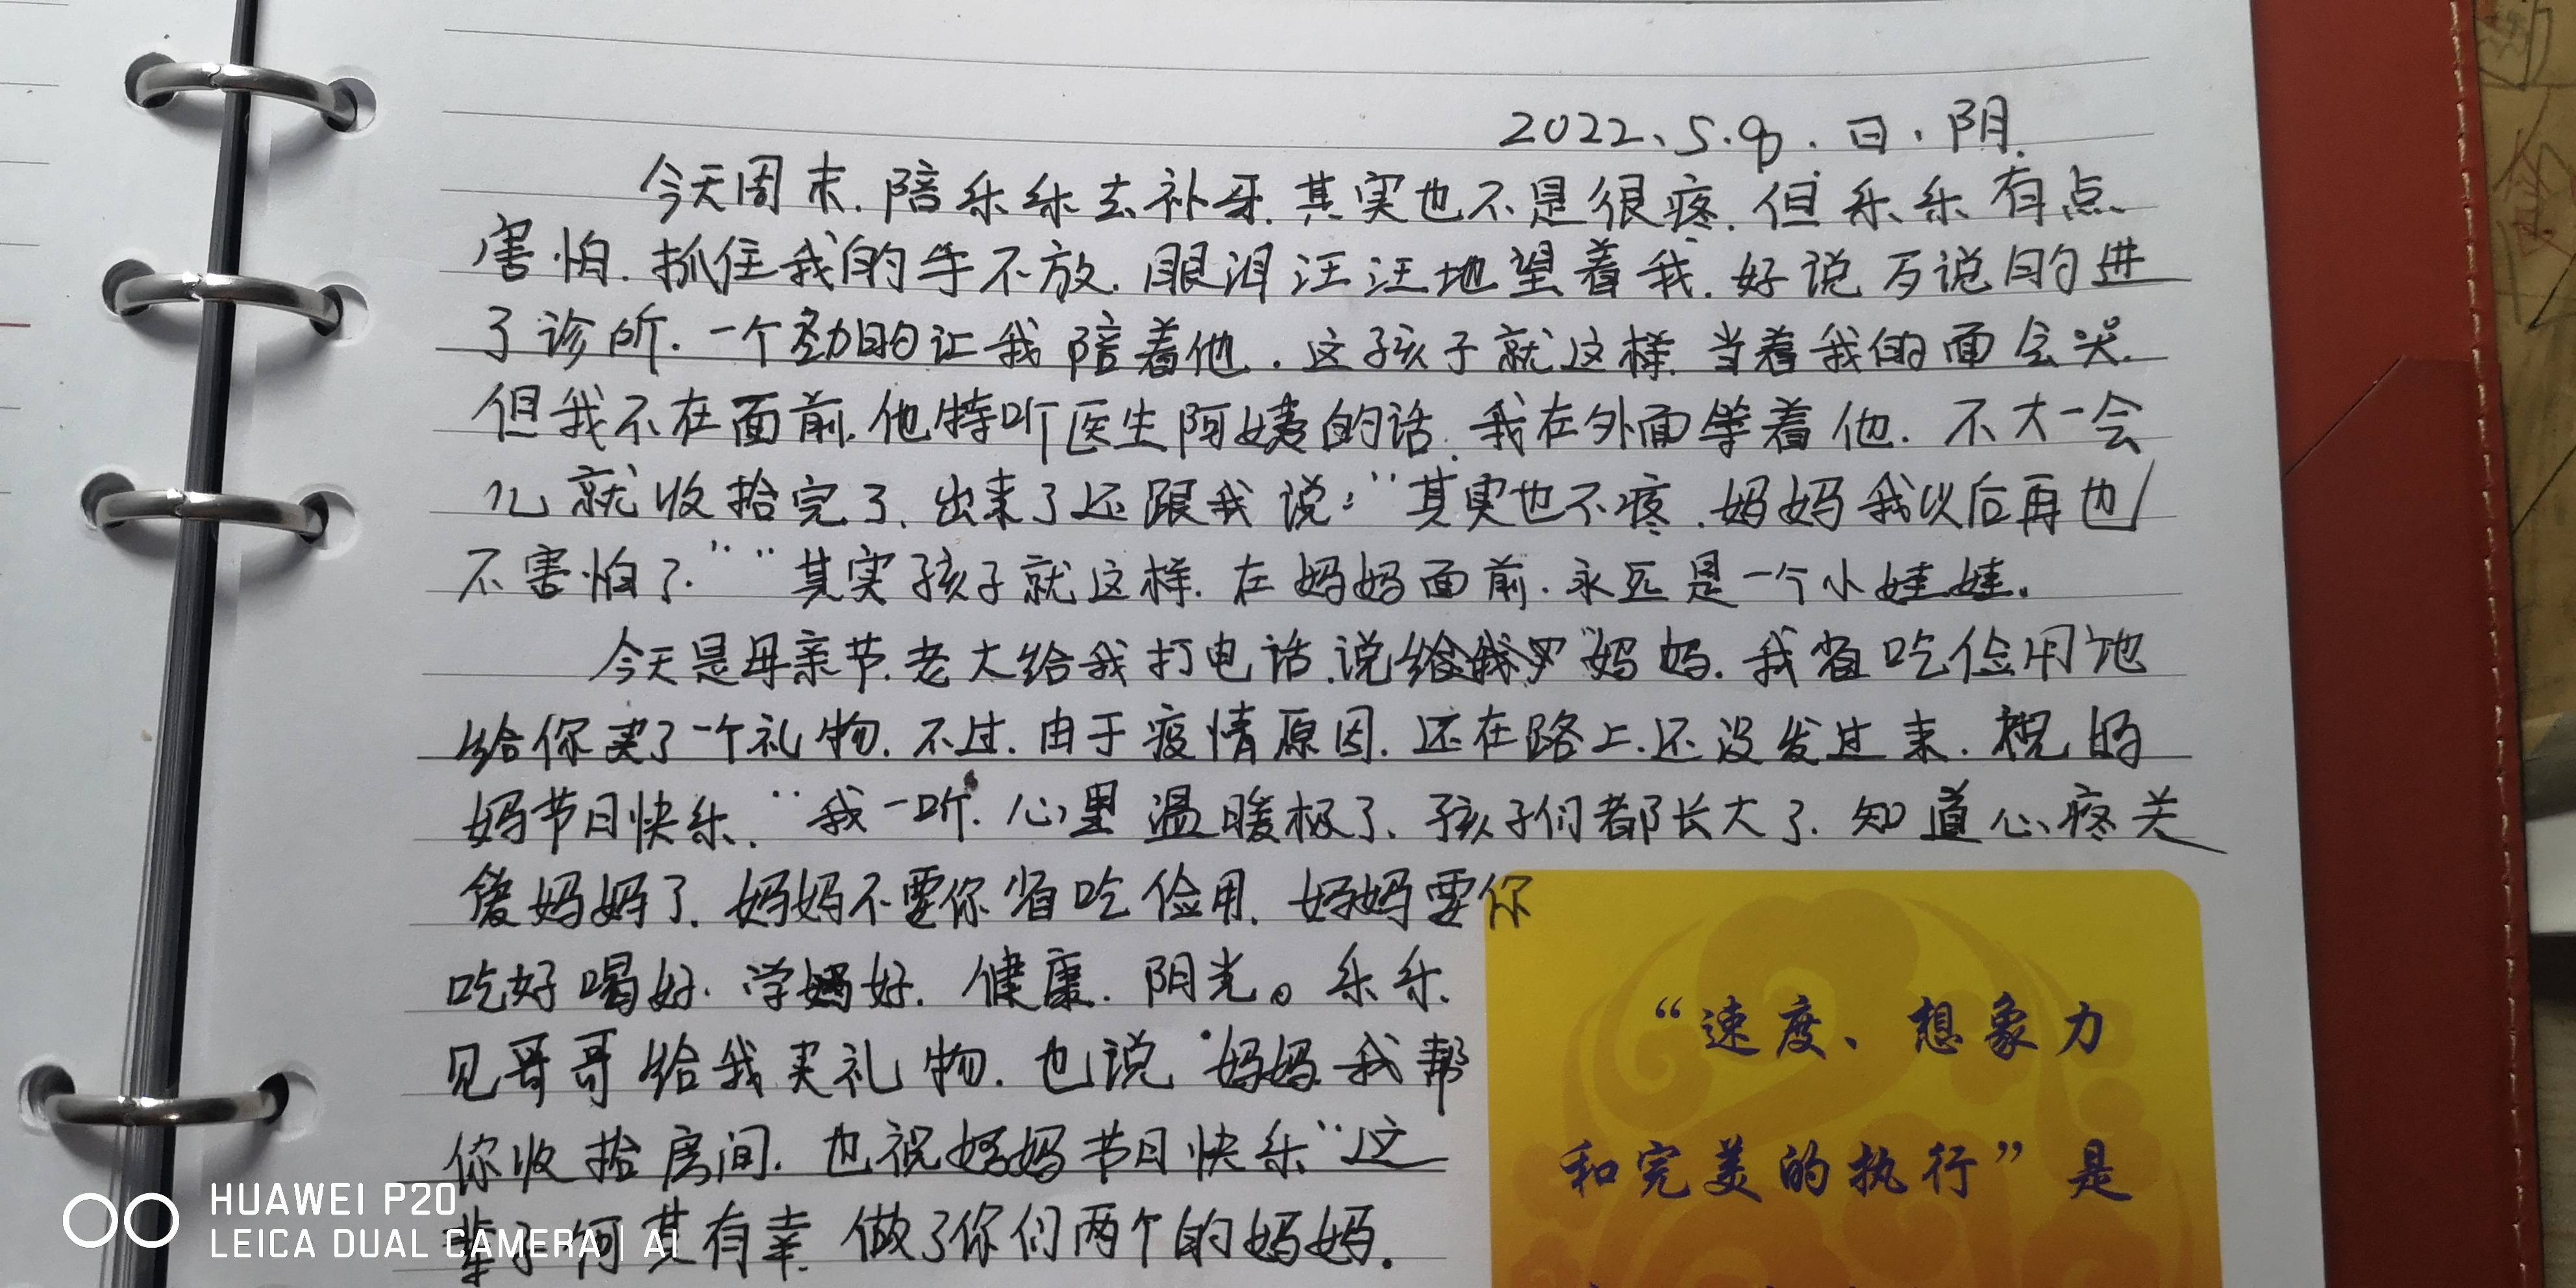 2022、5.9.日.阴.
今天周末.陪乐乐去补牙.其实也不是很疼.但乐乐有点
害怕.抓住我的手不放.眼泪汪汪地望着我.好说歹说的进
了诊所.一个劲的让我陪着他.这孩子就这样.当着我的面会哭.
但我不在面前.他特听医生阿姨的话.我在外面等着他.不大一会
儿就收拾完了.出来了还跟我说:"其实也不疼.妈妈我以后再也
不害怕了.""其实孩子就这样.在妈妈面前.永远是一个小娃娃.
今天是母亲节.老大给我打电话.说"妈妈.我省吃俭用地
给你买了一个礼物.不过.由于疫情原因.还在路上.还没发过来.祝的
妈节日快乐."我一听.心里温暖极了.孩子们都长大了.知道心疼关
爱妈妈了.妈妈不要你省吃俭用.妈妈要你
吃好喝好.学好.健康.阴光。乐乐.
见哥哥给我买礼物.也说"妈妈.我帮
你收拾房间.也祝妈妈节日快乐"这
辈子何其有幸.做了你们两个的妈妈.
"速度、想象力
和完美的执行"是
HUAWEI P20
LEICA DUAL CAMERA | AI